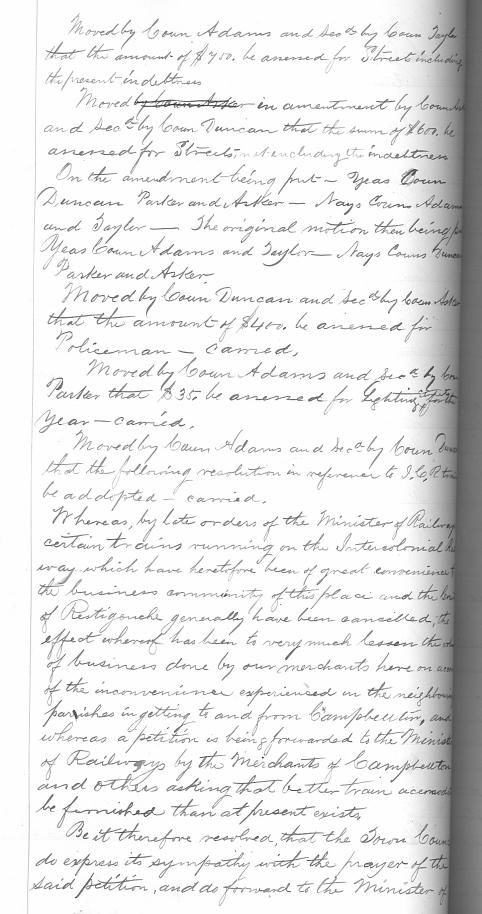 Moved by Coun Adams and Secd by Coun Taylor
that the amount of $700. be assessed for Streets including
the present indebtness
Moved by Coun Asker in amentment by Coun Ask
and Secd by Coun Duncan that the sum of $600. be
assessed for Streets, not encluding the indebtness
On the amendment being put – Yeas Coun
Duncan Parker and Asker – Nays Couns Adams
and Taylor – The original motion then being p
Yeas Coun Adams and Taylor – Nays Couns Duncan
Parker and Asker
Moved by Coun Duncan and Secd by Coun Asker
that the amount of $400. be assessed for
Policeman – carried.
Moved by Coun Adams and Secd by Cou
Parker that $35. be assessed for Lighting for the
Year – carried.
Moved by Coun Adams and Secd by Coun Dunc
that the following resolution in reference to I.C.R trai
be adopted – carried.
Whereas, by late orders of the Minister of Railway
certain trains running on the Intercolonial R
way which have heretofore been of great convenience t
the business community of this place and the
of Restigouche generally have been cancilled, the
effect whereof has been to very much lessen the
of business done by our merchants here on acco
of the inconvenience experienced in the neighbouri
parishes in getting to and from Campbellton, and
whereas a petition is being forwarded to the Minist
of Railways by the Merchants of Campbellton
and others asking that better train accomodati
be furnished than at present exists,
Be it therefore resolved, that the Town Coun
do express its sympathy with the prayer of the
said petition, and do forward to the Minister of